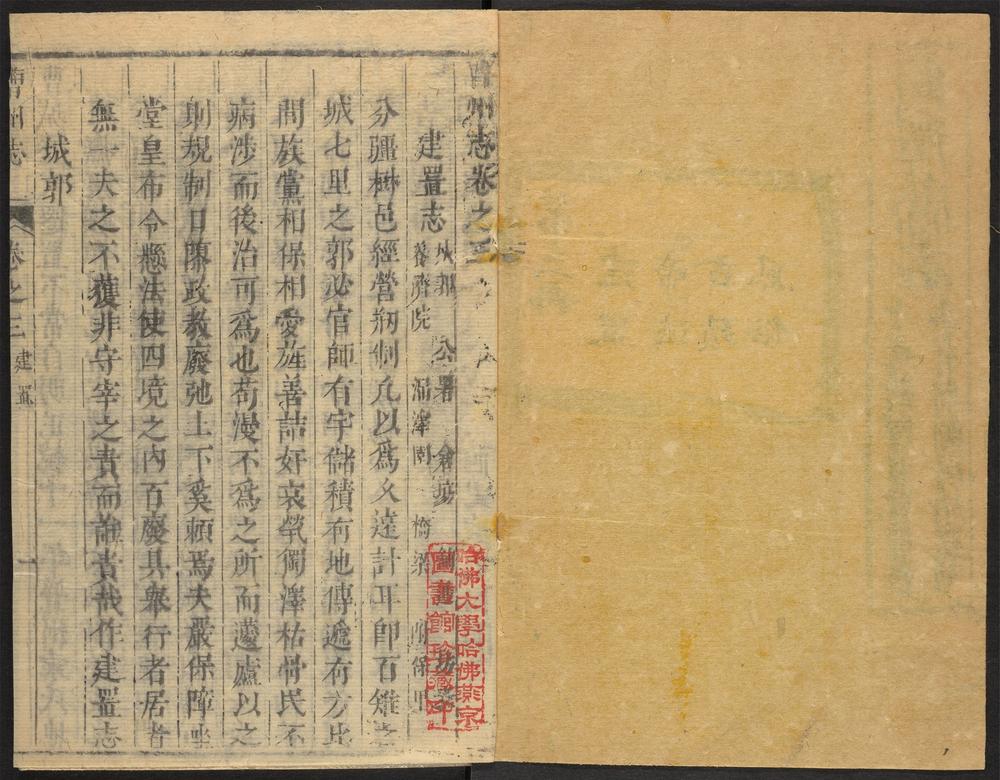 曹州志卷之三
建置志 城郭 公署 倉場 坊表
養濟院 漏澤園 橋梁 保里
分疆樹邑經營刱制凡以為久遠計耳即百雉之
城七里之郭必官師有宇儲積有地傳遞有方比
閭族黨相保相愛旌善詰奸哀煢獨澤枯骨民不
病涉而後治可為也苟漫不為之所而蘧廬以之
則規制日隳政教廢弛上下奚賴焉夫嚴保障坐
堂皇布令懸法使四境之內百廢具舉行者居者
無一夫之不獲非守宰之責而誰責哉作建置志
城郭
曹州志 卷之三 建置 一
哈佛大學哈佛燕京
圖書館珍藏印